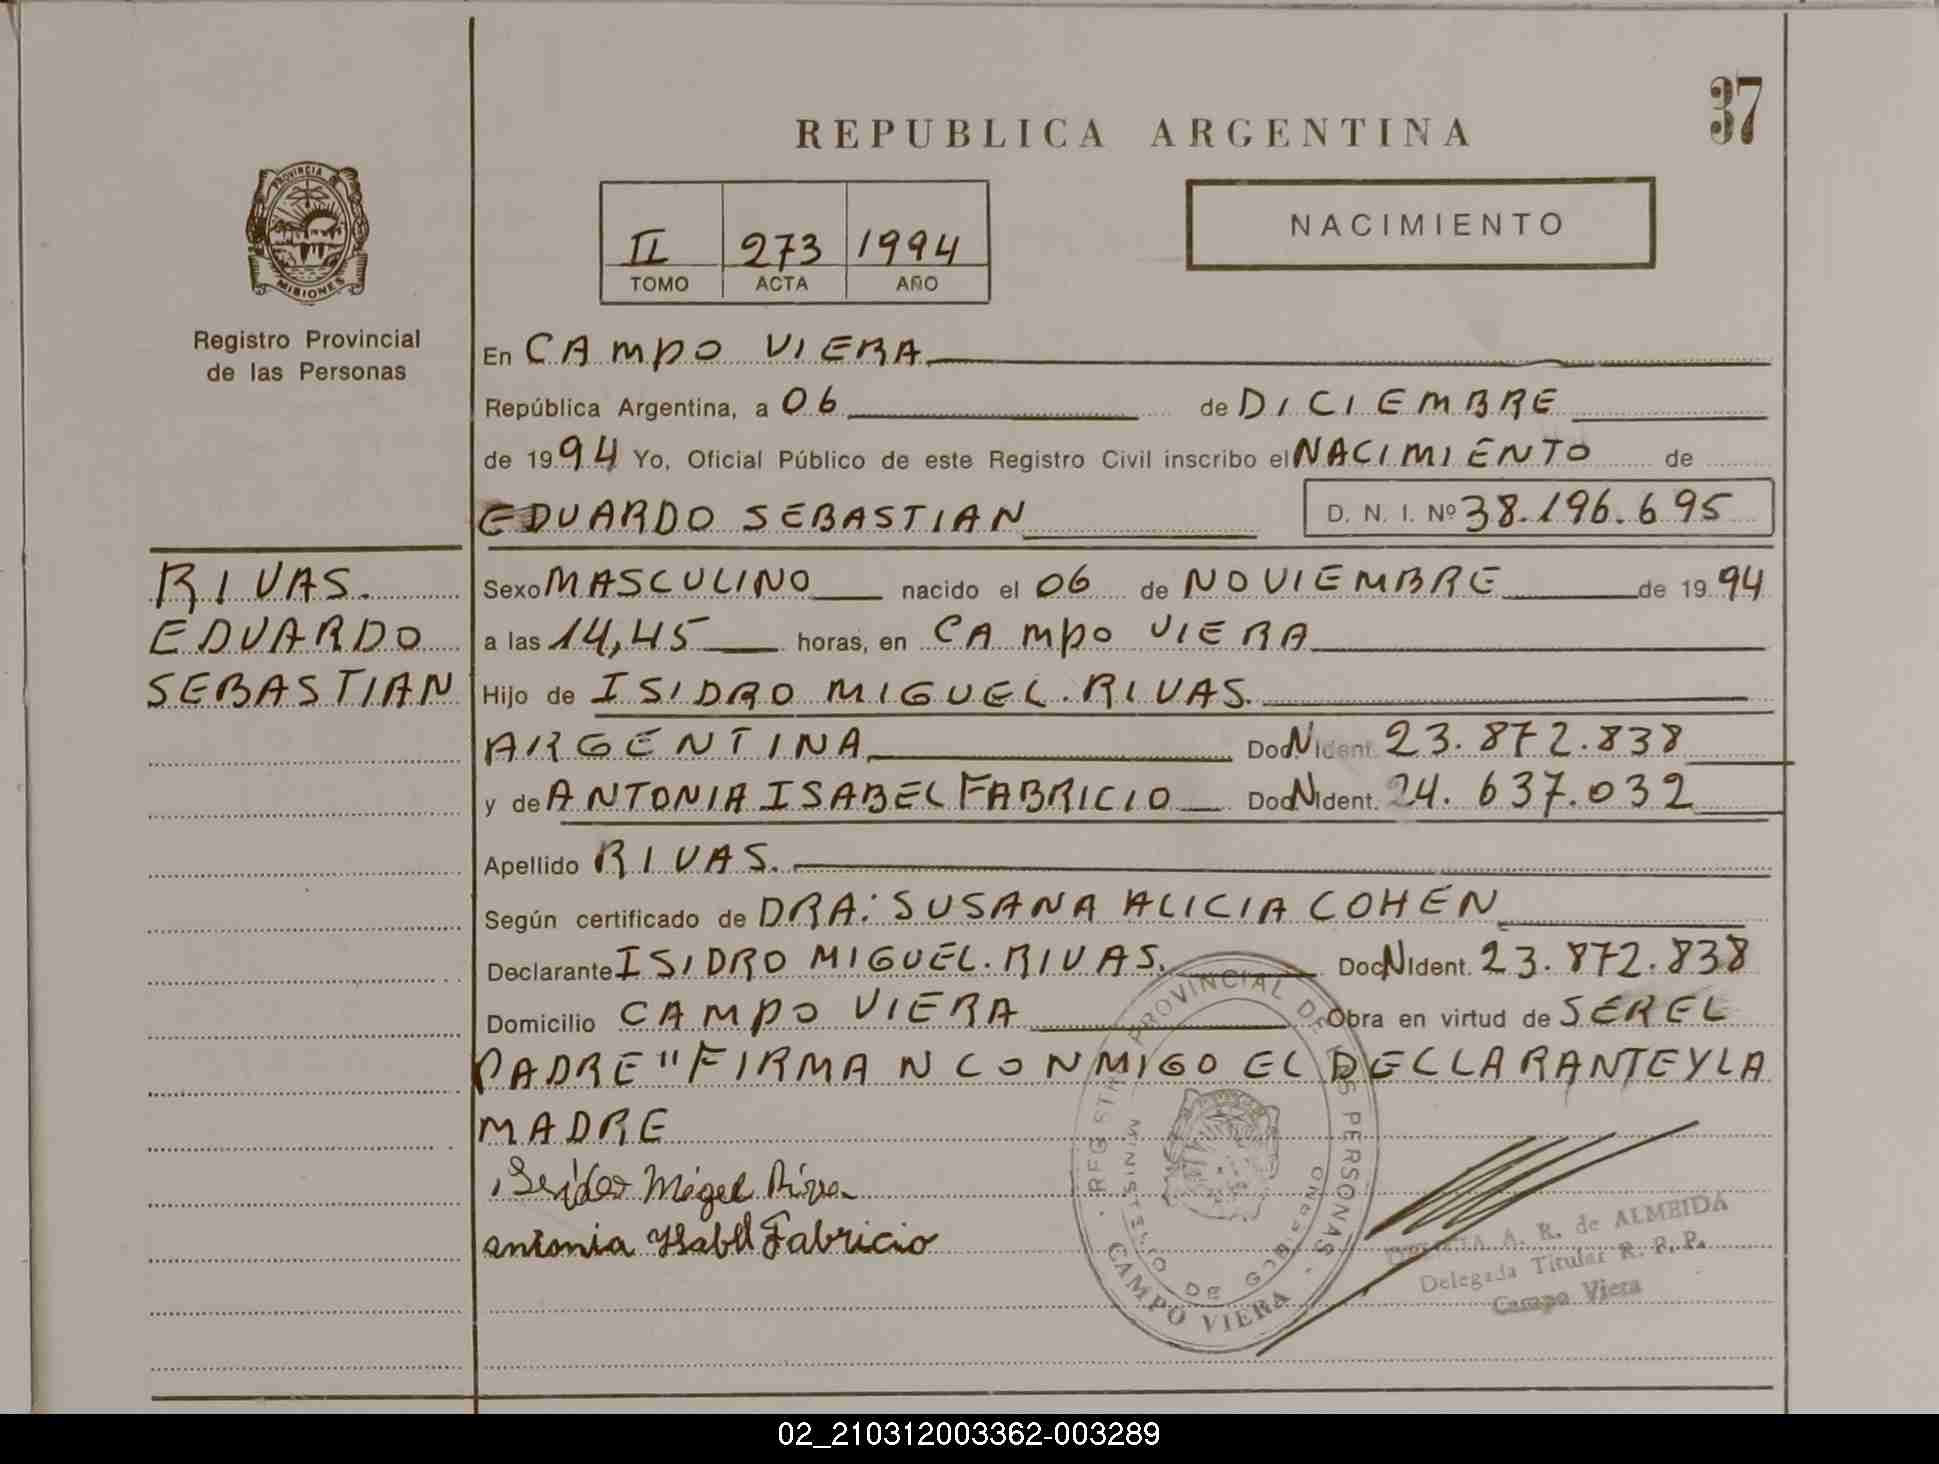 37
REPUBLICA ARGENTINA
PROVINCIA DE
MISIONES
NACIMIENTO
II 273 1994
TOMO ACTA AÑO
Registro Provincial
de las Personas
En CAMPO VIERA
República Argentina, a 06 de DICIEMBRE
de 1994 Yo, Oficial Público de este Registro Civil inscribo el NACIMIENTO de
EDUARDO SEBASTIAN D. N. I. Nº 38.196.695
RIVAS.
EDUARDO
SEBASTIAN
Sexo MASCULINO nacido el 06 de NOVIEMBRE de 1994
a las 14,45 horas, en CAMPO VIERA
Hijo de ISIDRO MIGUEL. RIVAS.
ARGENTINA DocN Ident. 23.872.838
y de ANTONIA ISABEL FABRICIO DocN Ident. 24.637.032
Apellido RIVAS.
Según certificado de DRA: SUSANA ALICIA COHEN
Declarante ISIDRO MIGUEL. RIVAS. DocN Ident. 23.872.838
Domicilio CAMPO VIERA Obra en virtud de SER EL
PADRE " FIRMAN CONMIGO EL DECLARANTE Y LA
MADRE
Miguel Rivas
antonia Isabel Fabricio
REGISTRO PROVINCIAL DE LAS PERSONAS
MINISTERIO DE GOBIERNO
CAMPO VIERA
A. R. de ALMEIDA
Delegada Titular R. P. P.
Campo Viera
02_210312003362-003289